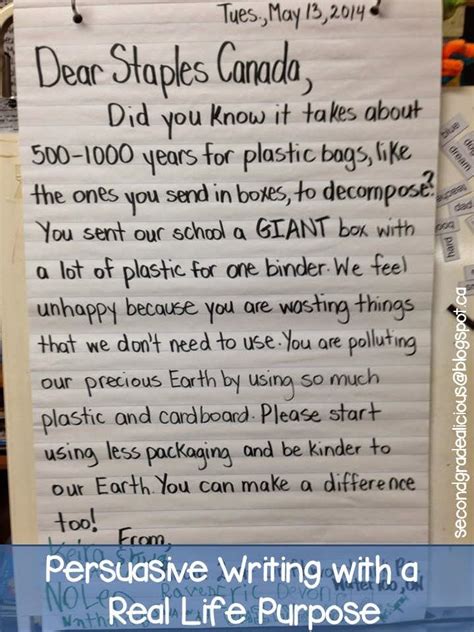 Tues., May 13, 2014
Dear Staples Canada,
Did you know it takes about
500-1000 years for plastic bags, like
the ones you send in boxes, to decompose?
You sent our school a GIANT box with
a lot of plastic for one binder. We feel
unhappy because you are wasting things
that we don't need to use. You are polluting
our precious Earth by using so much
plastic and cardboard. Please start
using less packaging and be kinder to
our Earth. You can make a difference
too!
From,
Persuasive Writing with a
Real Life Purpose
secondgradealicious@blogspot.ca
blue
dream
dad
hard